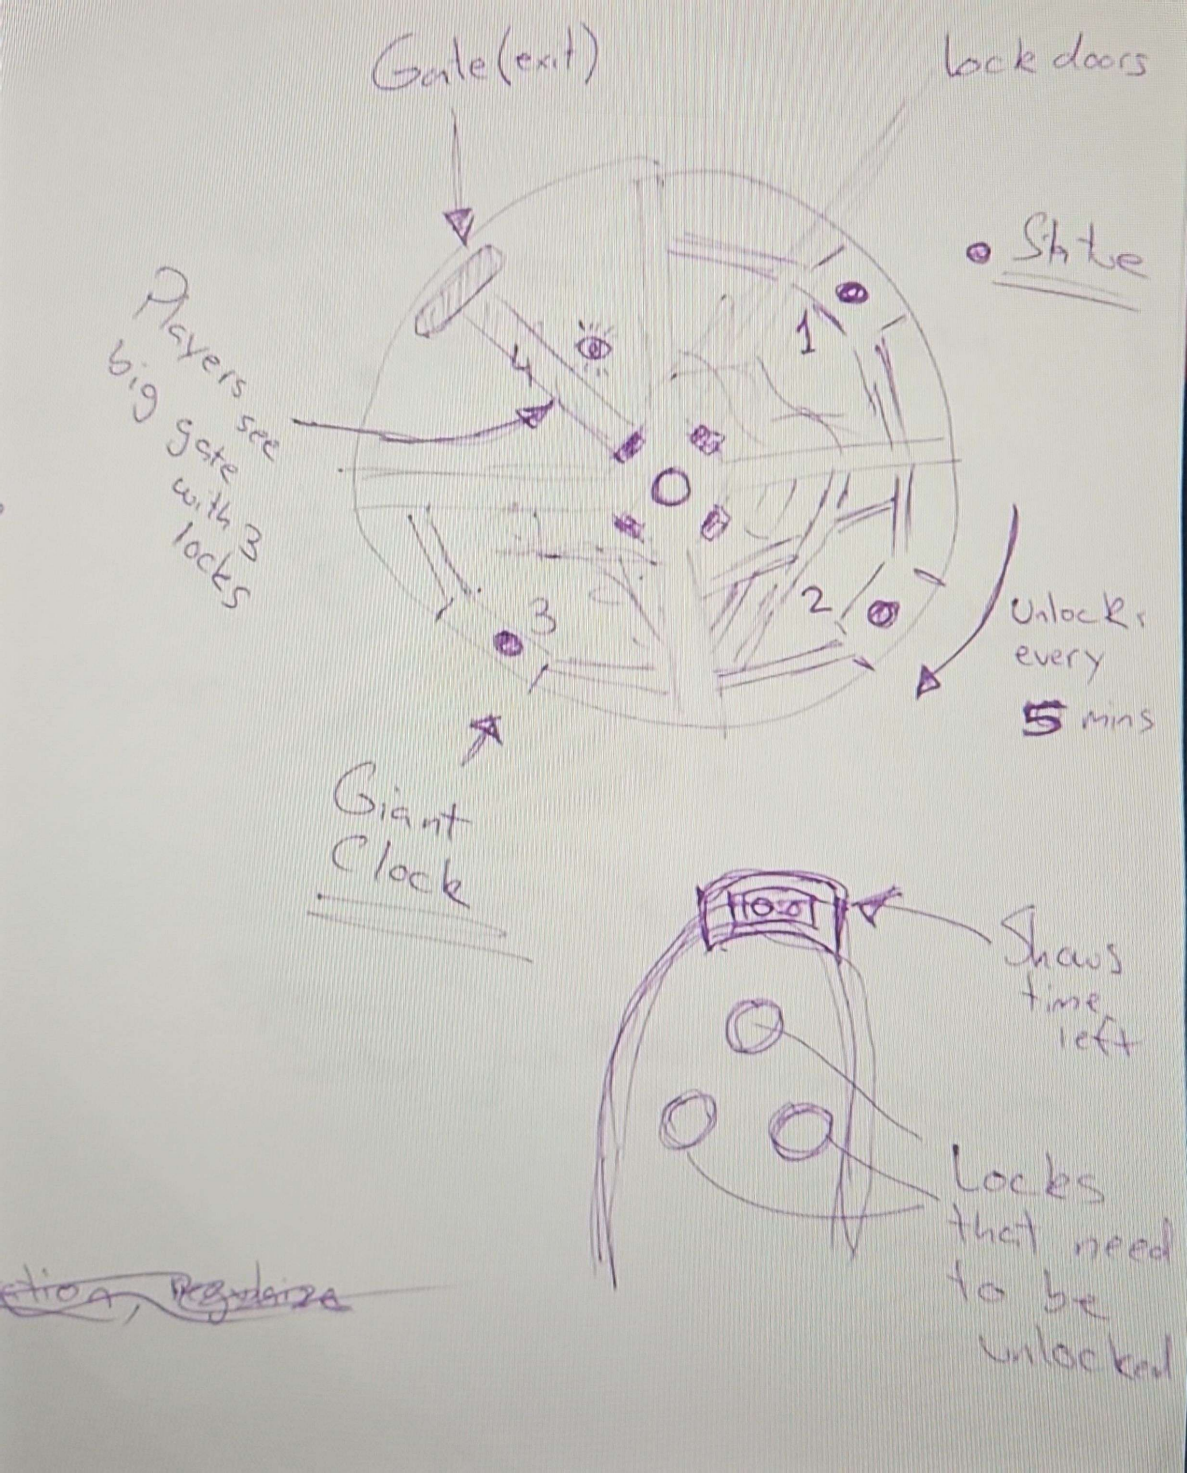 Gate(exit)
lock doors
Players see
big gate
with 3
locks
1
4
2
3
Unlocks
every
5 mins
Giant
Clock
10:0
Shows
time
left
Locks
that need
to be
unlocked